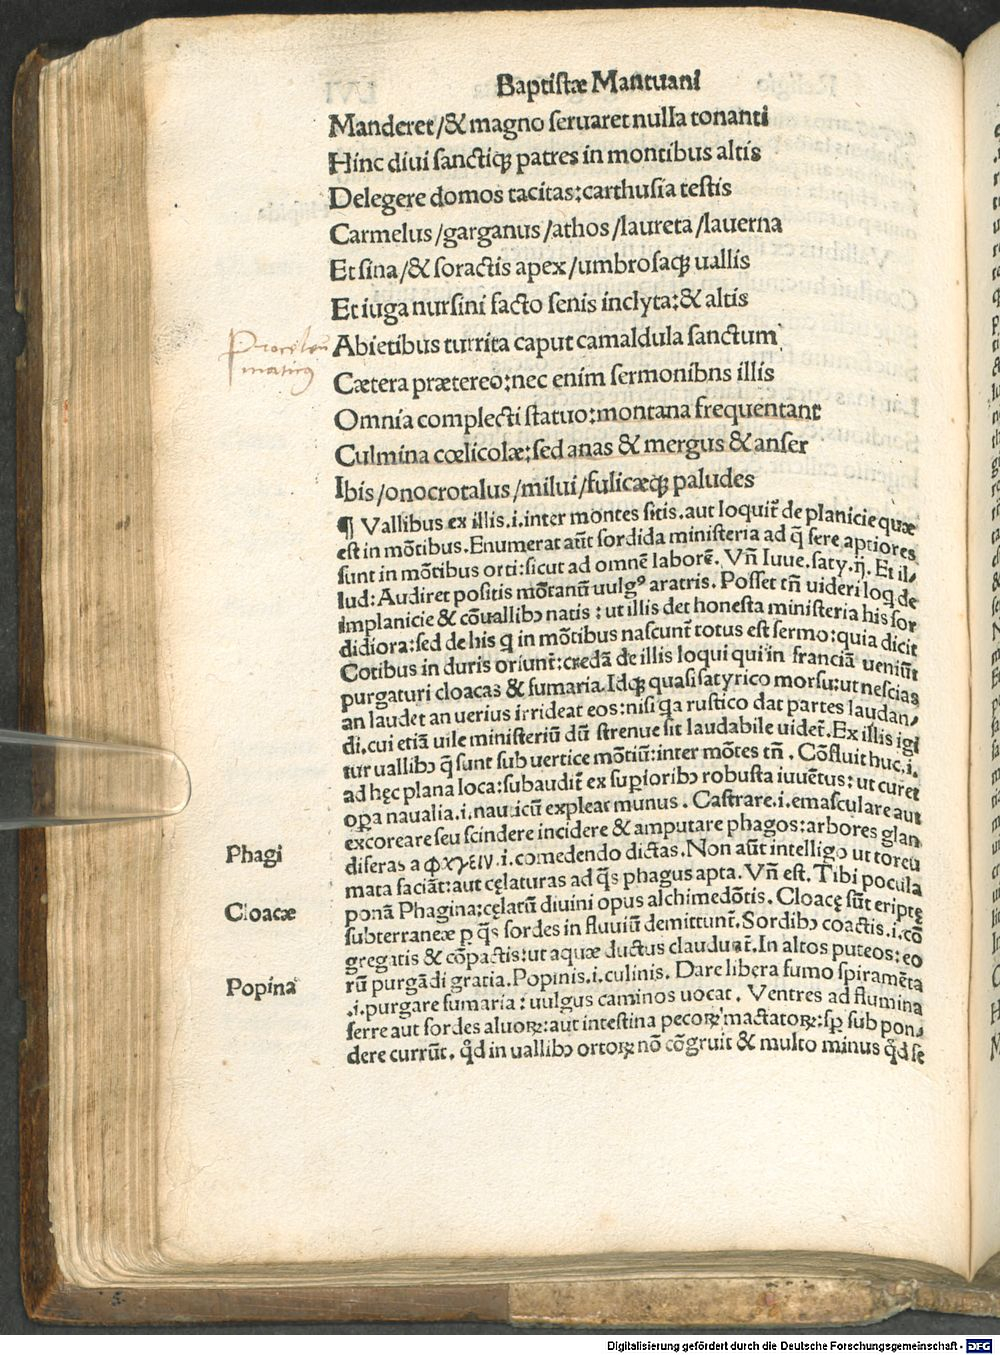 Baptistæ Mantuani
Manderet/& magno seruaret nulla tonanti
Hinc diui sanctiqȝ patres in montibus altis
Delegere domos tacitas:carthusia testis
Carmelus/garganus/athos/laureta/lauerna
Et sina/& soractis apex/umbrosaqȝ uallis
Et iuga nursini facto senis inclyta:& altis
Abietibus turrita caput camaldula sanctum
Cætera prætereo:nec enim sermonibns illis
Omnia complecti statuo:montana frequentant
Culmina cœlicolæ:sed anas & mergus & anser
Ibis/onocrotalus/milui/fulicæqȝ paludes
¶ Vallibus ex illis.i.inter montes sitis.aut loquit̃ de planicie quæ
est in mõtibus.Enumerat aũt sordida ministeria ad q̃ fere aptiores
sunt in mõtibus orti:sicut ad omnẽ laborẽ. Vñ Iuue.saty.ij. Et il/
lud:Audiret positis mõtanũ uulgꝰ aratris. Posset tñ uideri loq de
implanicie & cõuallibɔ natis : ut illis det honesta ministeria his sor
didiora:sed de his q in mõtibus nascunt̃ totus est sermo:quia dicit
Cotibus in duris oriunt̃:credã de illis loqui qui in franciã ueniũt
purgaturi cloacas & fumaria.Idqȝ quasi satyrico morsu:ut nescias
an laudet an uerius irrideat eos:nisi qa rustico dat partes laudan/
di.cui etiã uile ministeriũ dũ strenue sit laudabile uidet̃.Ex illis igi
tur uallibɔ q̃ sunt sub uertice mõtiũ:inter mõtes tñ . Cõfluit huc.i.
ad hęc plana loca:subaudit̃ ex suꝑioribɔ robusta iuuẽtus: ut curet
oꝑa naualia.i.nauticũ expleat munus . Castrare.i.emasculare aut
excoreare seu scindere incidere & amputare phagos:arbores glan
diferas a φαγειν.i.comedendo dictas.Non aũt intelligo ut toreu
mata faciãt:aut cęlaturas ad q̃s phagus apta. Vñ est. Tibi pocula
ponã Phagina:cęlatũ diuini opus alchimedõtis. Cloacę sũt eriptę
subterraneæ p q̃s sordes in fluuiũ demittunt̃.Sordibɔ coactis.i.cõ
gregatis & cõpactis:ut aquæ ductus claudũt.In altos puteos:eo
rũ purgãdi gratia.Popinis.i.culinis. Dare libera fumo spiramẽta
.i.purgare fumaria : uulgus caminos uocat . Ventres ad flumina
ferre aut sordes aluoꝝ:aut intestina pecoꝝ mactatoꝝ:sꝑ sub pon/
dere currũt. qď in uallibɔ ortoꝝ nõ cõgruit & multo minus qď se
Phagi
Cloacæ
Popina
Digitalisierung gefördert durch die Deutsche Forschungsgemeinschaft - DFG